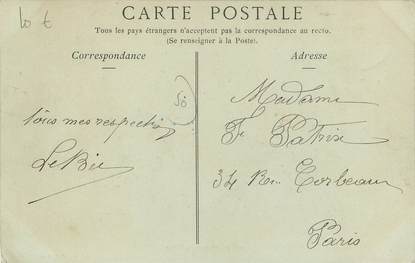 10 €
CARTE POSTALE
Tous les pays étrangers n'acceptent pas la correspondance au recto.
(Se renseigner à la Poste).
Correspondance
Adresse
50
Tous mes respects
Madame
F. Patrix
34 Rue Corbeau
Paris